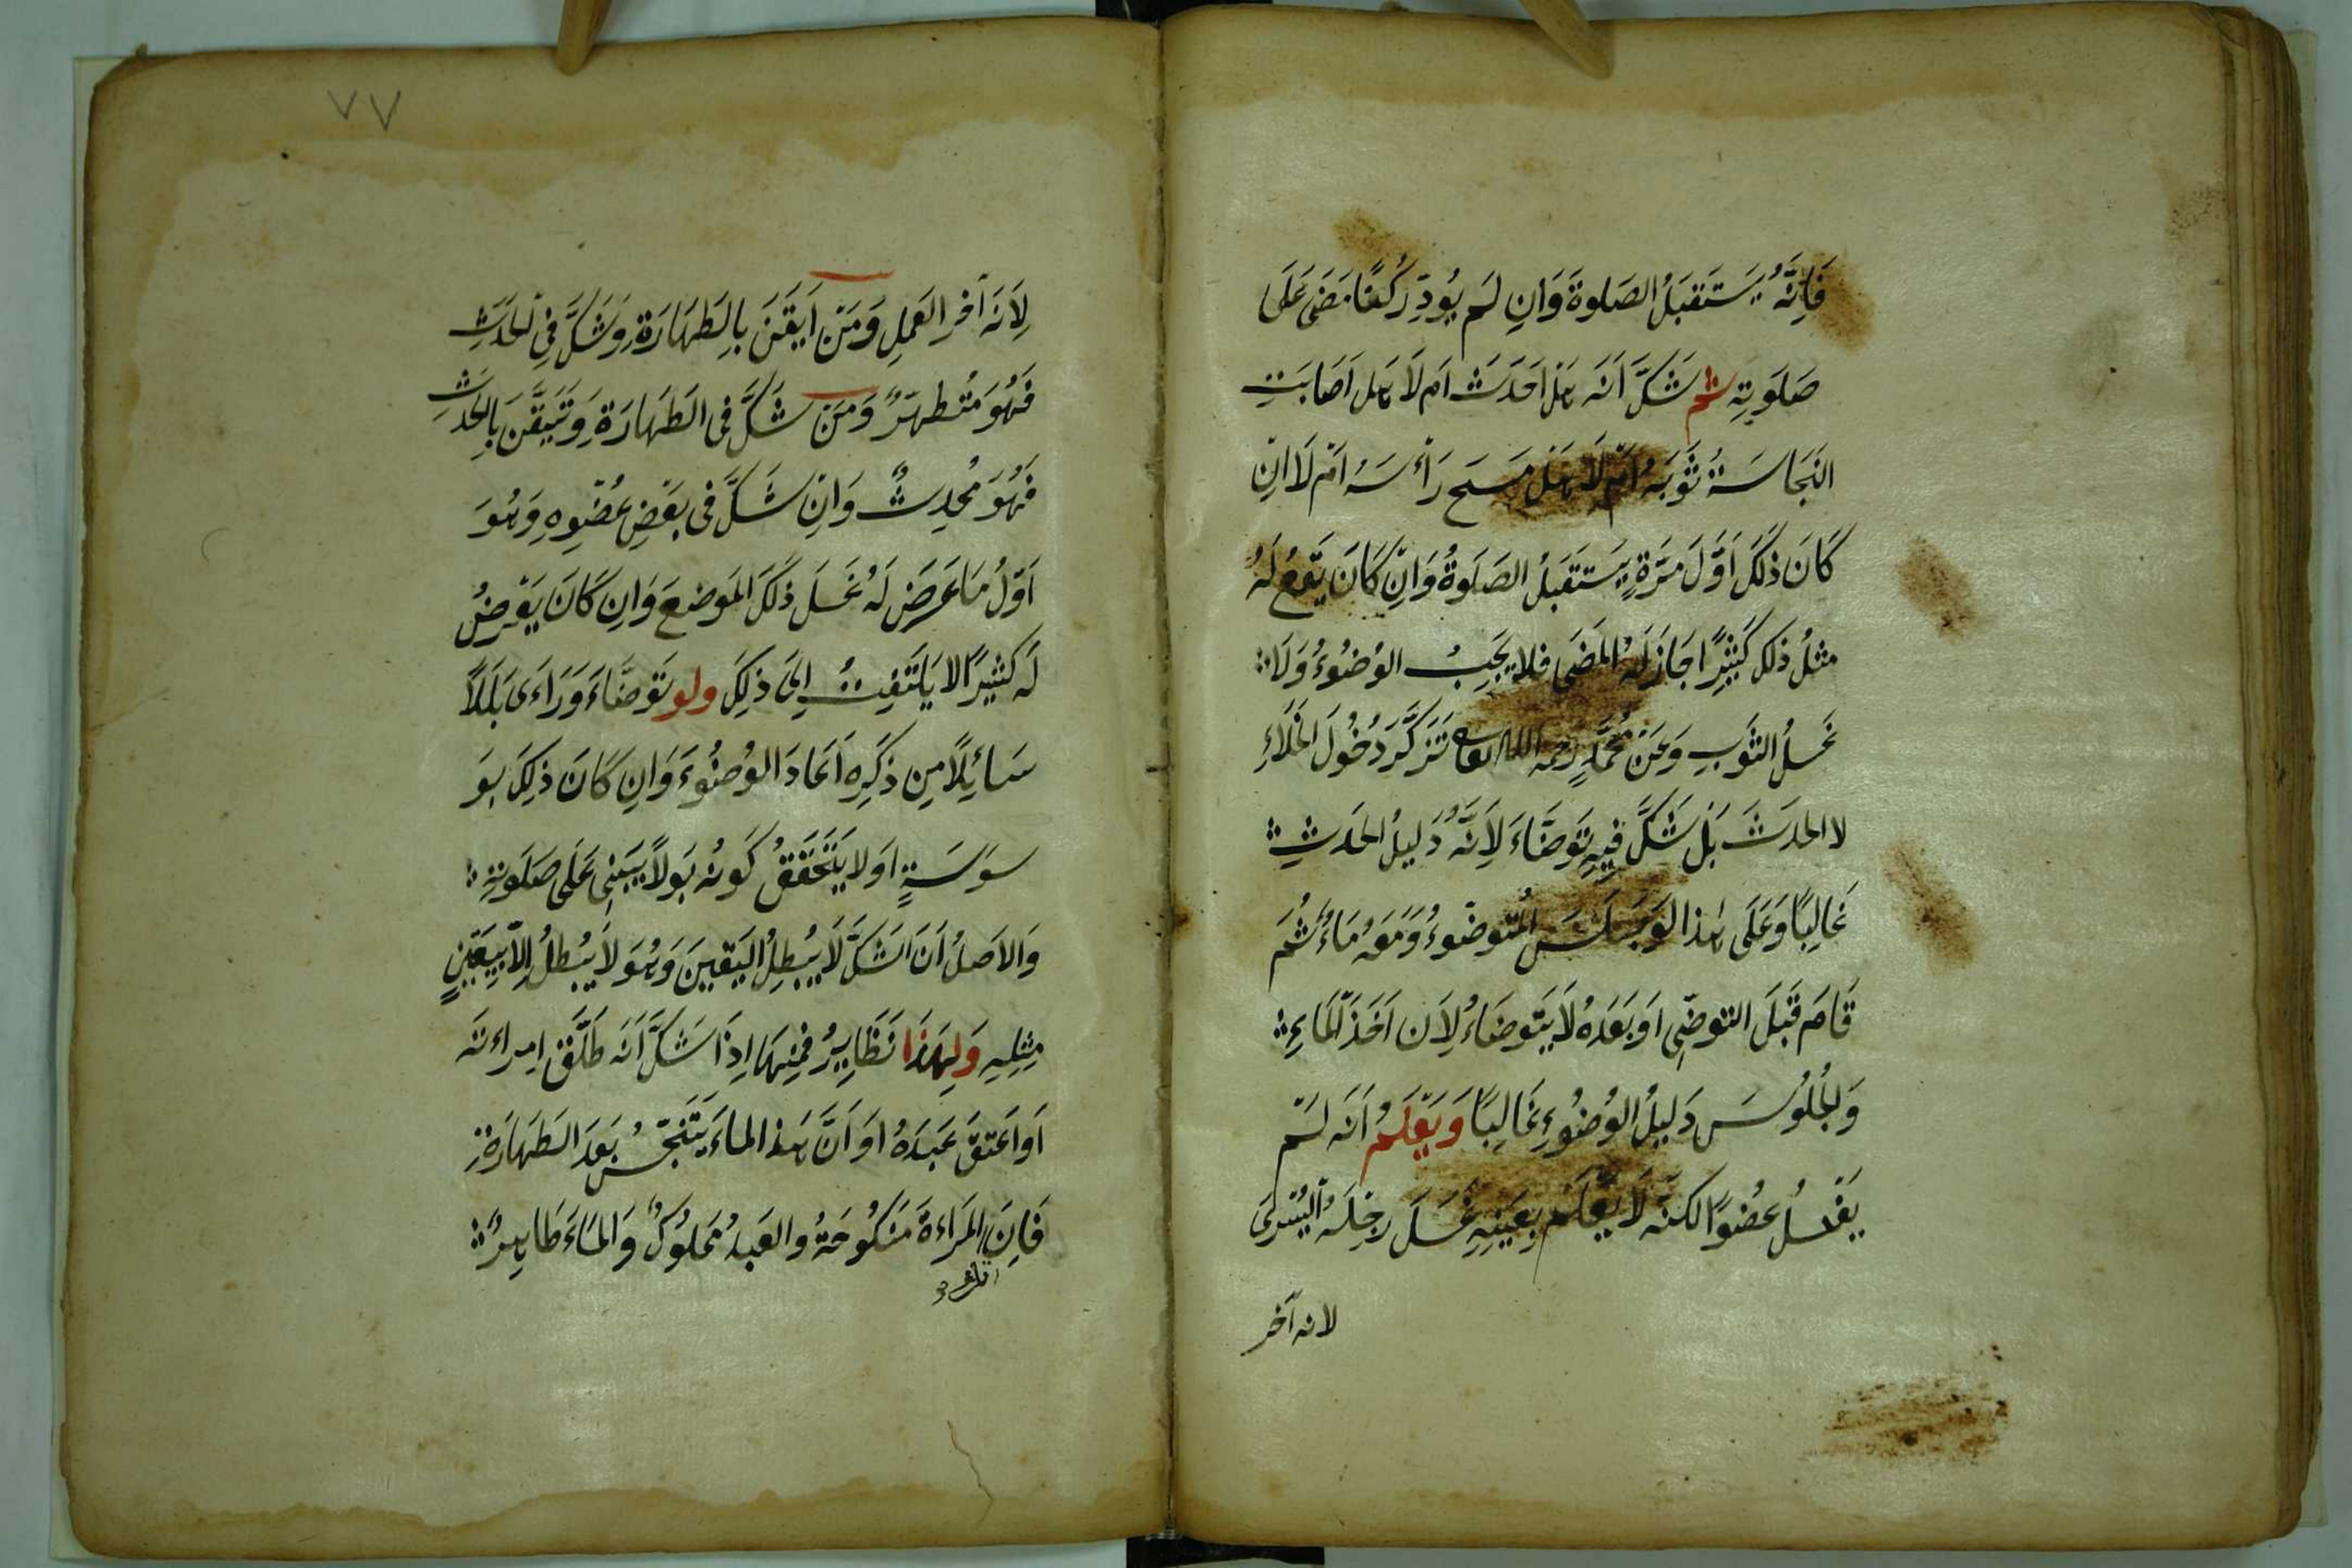 فَاِنَّهُ يَسْتَقبَلُ الصَلوةَ وَانِ لَم يُودِّ رُكنًا مَضَى عَلَى
صَلَوتِهِ ثم شَكَّ اَنَه هَل اَحَدَثَ اَم لَا هَل اَصَابَتِ
النَجَاسَةُ ثَوبَهُ اَم لَا هَل مَسَح رَأسَهُ اَم لَا اِنْ
كَانَ ذٰلِكَ اَوَّلَ مَرَّةٍ يَسْتَقبَلُ الصَلَوةُ وَانِ كَانَ يَقَعُ لَهُ
مثلُ ذلِكَ كَثِيْرًا جَازَ لَهُ المَضَى فلا يَجِبُ الوُضُوءُ وَلَا
غَسلُ الثَوبِ وَعَن مُحَمَّدٍ رحمه الله تعا تَزَكَّرَ دُخُولَ الخَلَاءِ
لا الحدَثَ بَل شَكَّ فِيهِ تَوضَّاءَ لِاَنَّهُ دَلِيلُ الحَدَثِ
غَالِبًا وَعَلَى هٰذا لَو جَلَسَ المُتَوضّوءُ وَمَعَهُ مَاءٌ ثُم
قَامَ قَبلَ التوضّى اَو بَعَدهُ لَا يَتَوضَاءُ لِاَن اَخَذَ المَاءِ
وَالجُلُوسَ دَلِيلُ الوُضُوءِ غَالِبًا وَيَعْلَمُ اَنَه لَمْ
يَغسلُ عُضوًا لكنّه لَا يَعْلَم بِعَينِهِ غَسَلَ رِجلَهُ اليُسْرَى
لانه آخر
٧٧
لِاَنَه آخر العَمِل وَمَنْ اَيقَنَ بِالطَهَارَةِ وَشَكَّ فِي الحَدَثِ
فَهُوَ مُتَطهِرٌ وَمَن شَكَّ فى الطَهَارَةِ وَتَيَقَّنَ بِالحَدثِ
فَهُوَ مُحدِثٌ وَاِن شَكَّ فى بَعْضِ عُضْوِهِ وَهُوَ
اَوّلُ مَا عَرضَ لَهُ غَسلَ ذٰلِكَ المَوضعَ وَانِ كَانَ يَعْرضُ
لَه كَثيرًا لا يَلتَفِتُ اِلَى ذٰلِكَ ولو تَوضّاءَ وَرَاءى بَلَلًا
سَائِلًا مِن ذَكَرِه اَعَادَ الوُضُوءَ وَانِ كَانَ ذٰلِكَ بِوَ
سوَسَةٍ اَو لا يَتَحَقَقُ كَونُه بَولاً يَبنِى عَلَى صَلَوتِهِ
وَالاَصلُ اَنَ الشَكَّ لَا يُبطِلُ اليَقينَ وَهُوَ لَا يُبْطلُ اِلّا بِيَقينٍ
مِثلِهِ وَلِهٰذَا نَظَايِرُ فمِنهَا اِذَا شَكَّ اَنَه طَلَّقَ امراءته
اَو اَعتقَ عَبدَهُ اَو اَنَّ هٰذا الماءَ يَتَنَجّسُ بَعدَ الطَهَارَةِ
فَاِنَ المَراءةَ مَنكُوحَةُ والعَبدُ مَملُوكٌ وَالمَاءَ طَاهِرٌ